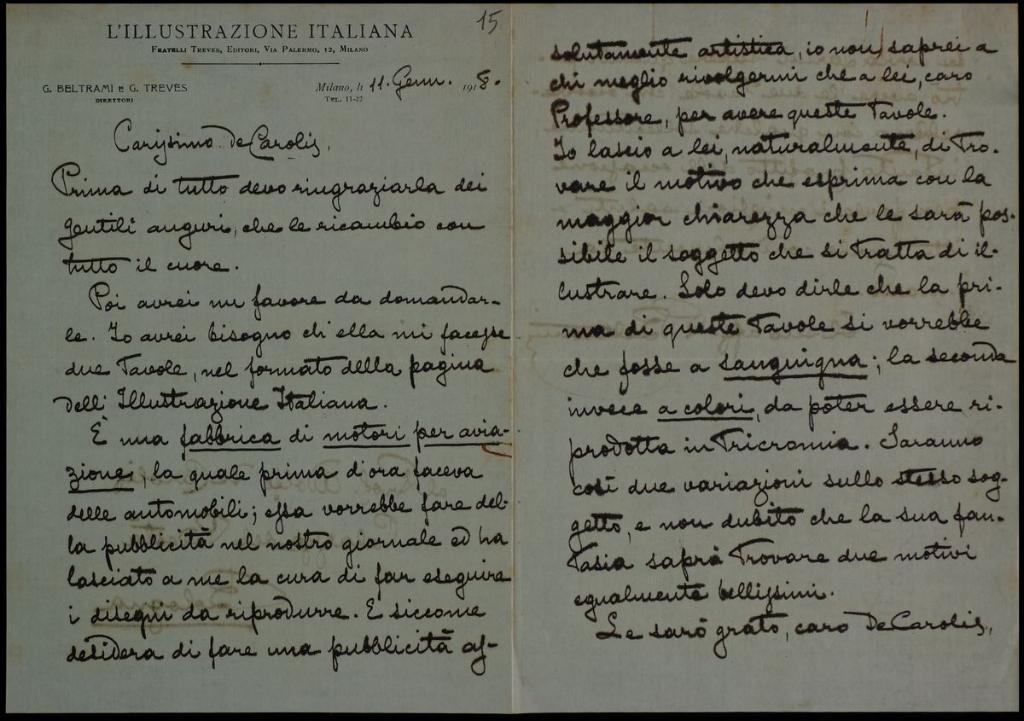 15
L'ILLUSTRAZIONE ITALIANA
FRATELLI TREVES, EDITORI, VIA PALERMO, 12, MILANO
G. BELTRAMI E G. TREVES
DIRETTORI
Milano, li 11. Genn. 1918.
TEL. 11-22
Carissimo De Carolis,
Prima di tutto devo ringraziarla dei
gentili auguri, che le ricambio con
tutto il cuore.
Poi avrei un favore da domandar-
le. Io avrei bisogno ch'ella mi facesse
due Tavole, nel formato della pagina
dell'Illustrazione Italiana.
È una fabbrica di motori per avia-
zione, la quale prima d'ora faceva
delle automobili; essa vorrebbe fare del-
la pubblicità nel nostro giornale ed ha
lasciato a me la cura di far eseguire
i disegni da riprodurre. E siccome
desidera di fare una pubblicità as-
solutamente artistica, io non saprei a
chi meglio rivolgermi che a lei, caro
Professore, per avere queste Tavole.
Io lascio a lei, naturalmente, di tro-
vare il motivo che esprima con la
maggior chiarezza che le sarà pos-
sibile il soggetto che si tratta di il-
lustrare. Solo devo dirle che la pri-
ma di queste Tavole si vorrebbe
che fosse a sanguigna; la seconda
invece a colori, da poter essere ri-
prodotta in Tricromia. Saranno
così due variazioni sullo stesso sog-
getto, e non dubito che la sua fan-
tasia saprà trovare due motivi
egualmente bellissimi.
Le sarò grato, caro De Carolis,